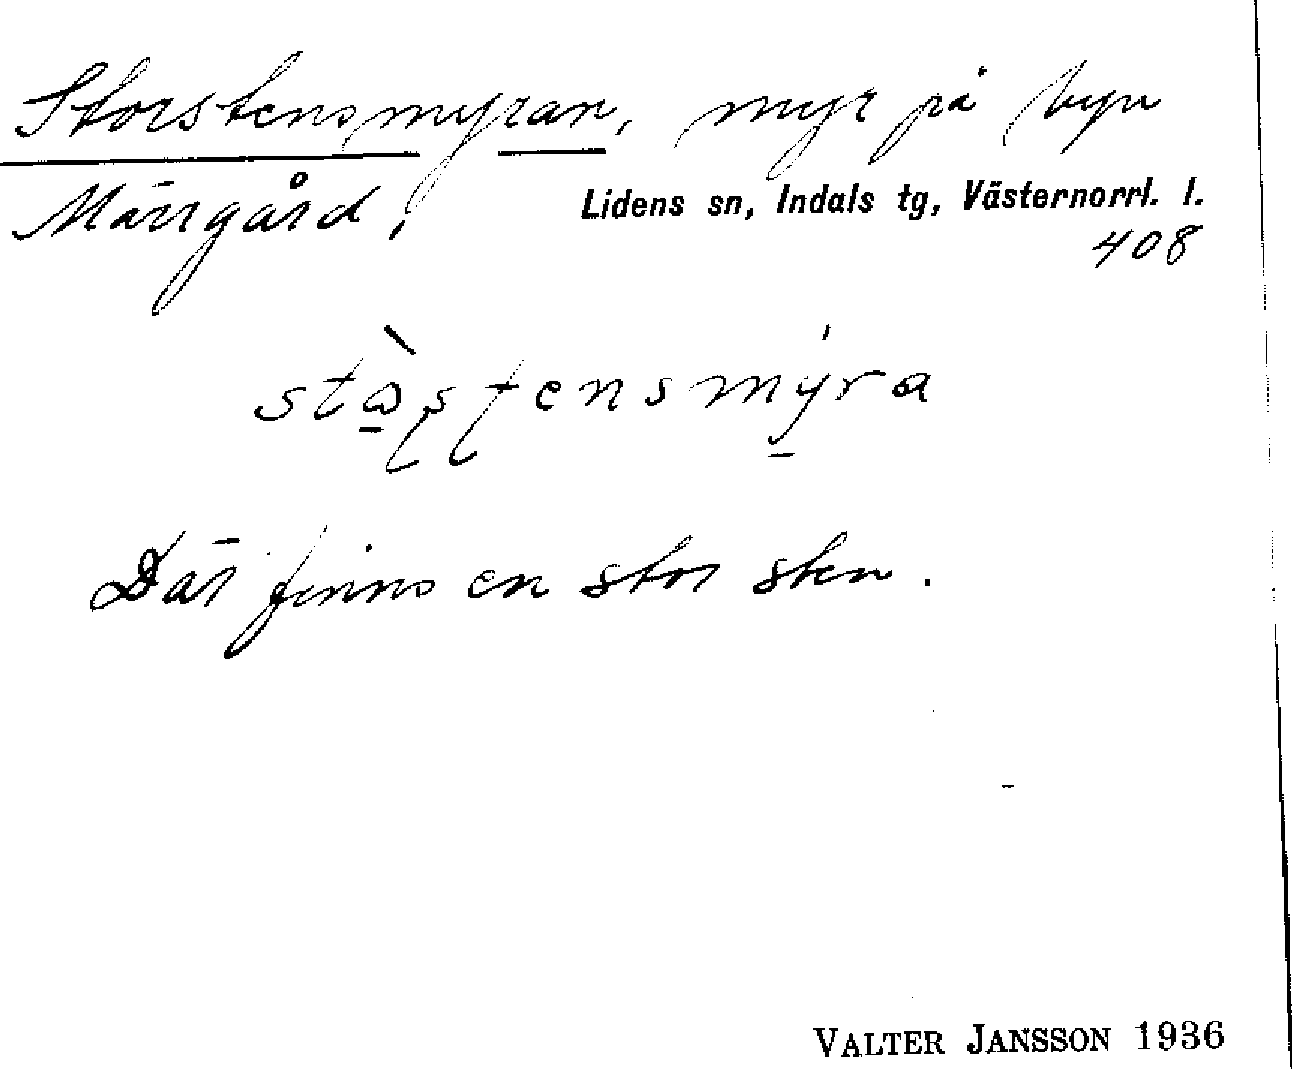 Storstensmyran, myr på byn
Märrgård, Lidens sn, Indals tg, Västernorrl. l.
408
Där finns en stor sten.
VALTER JANSSON 1936